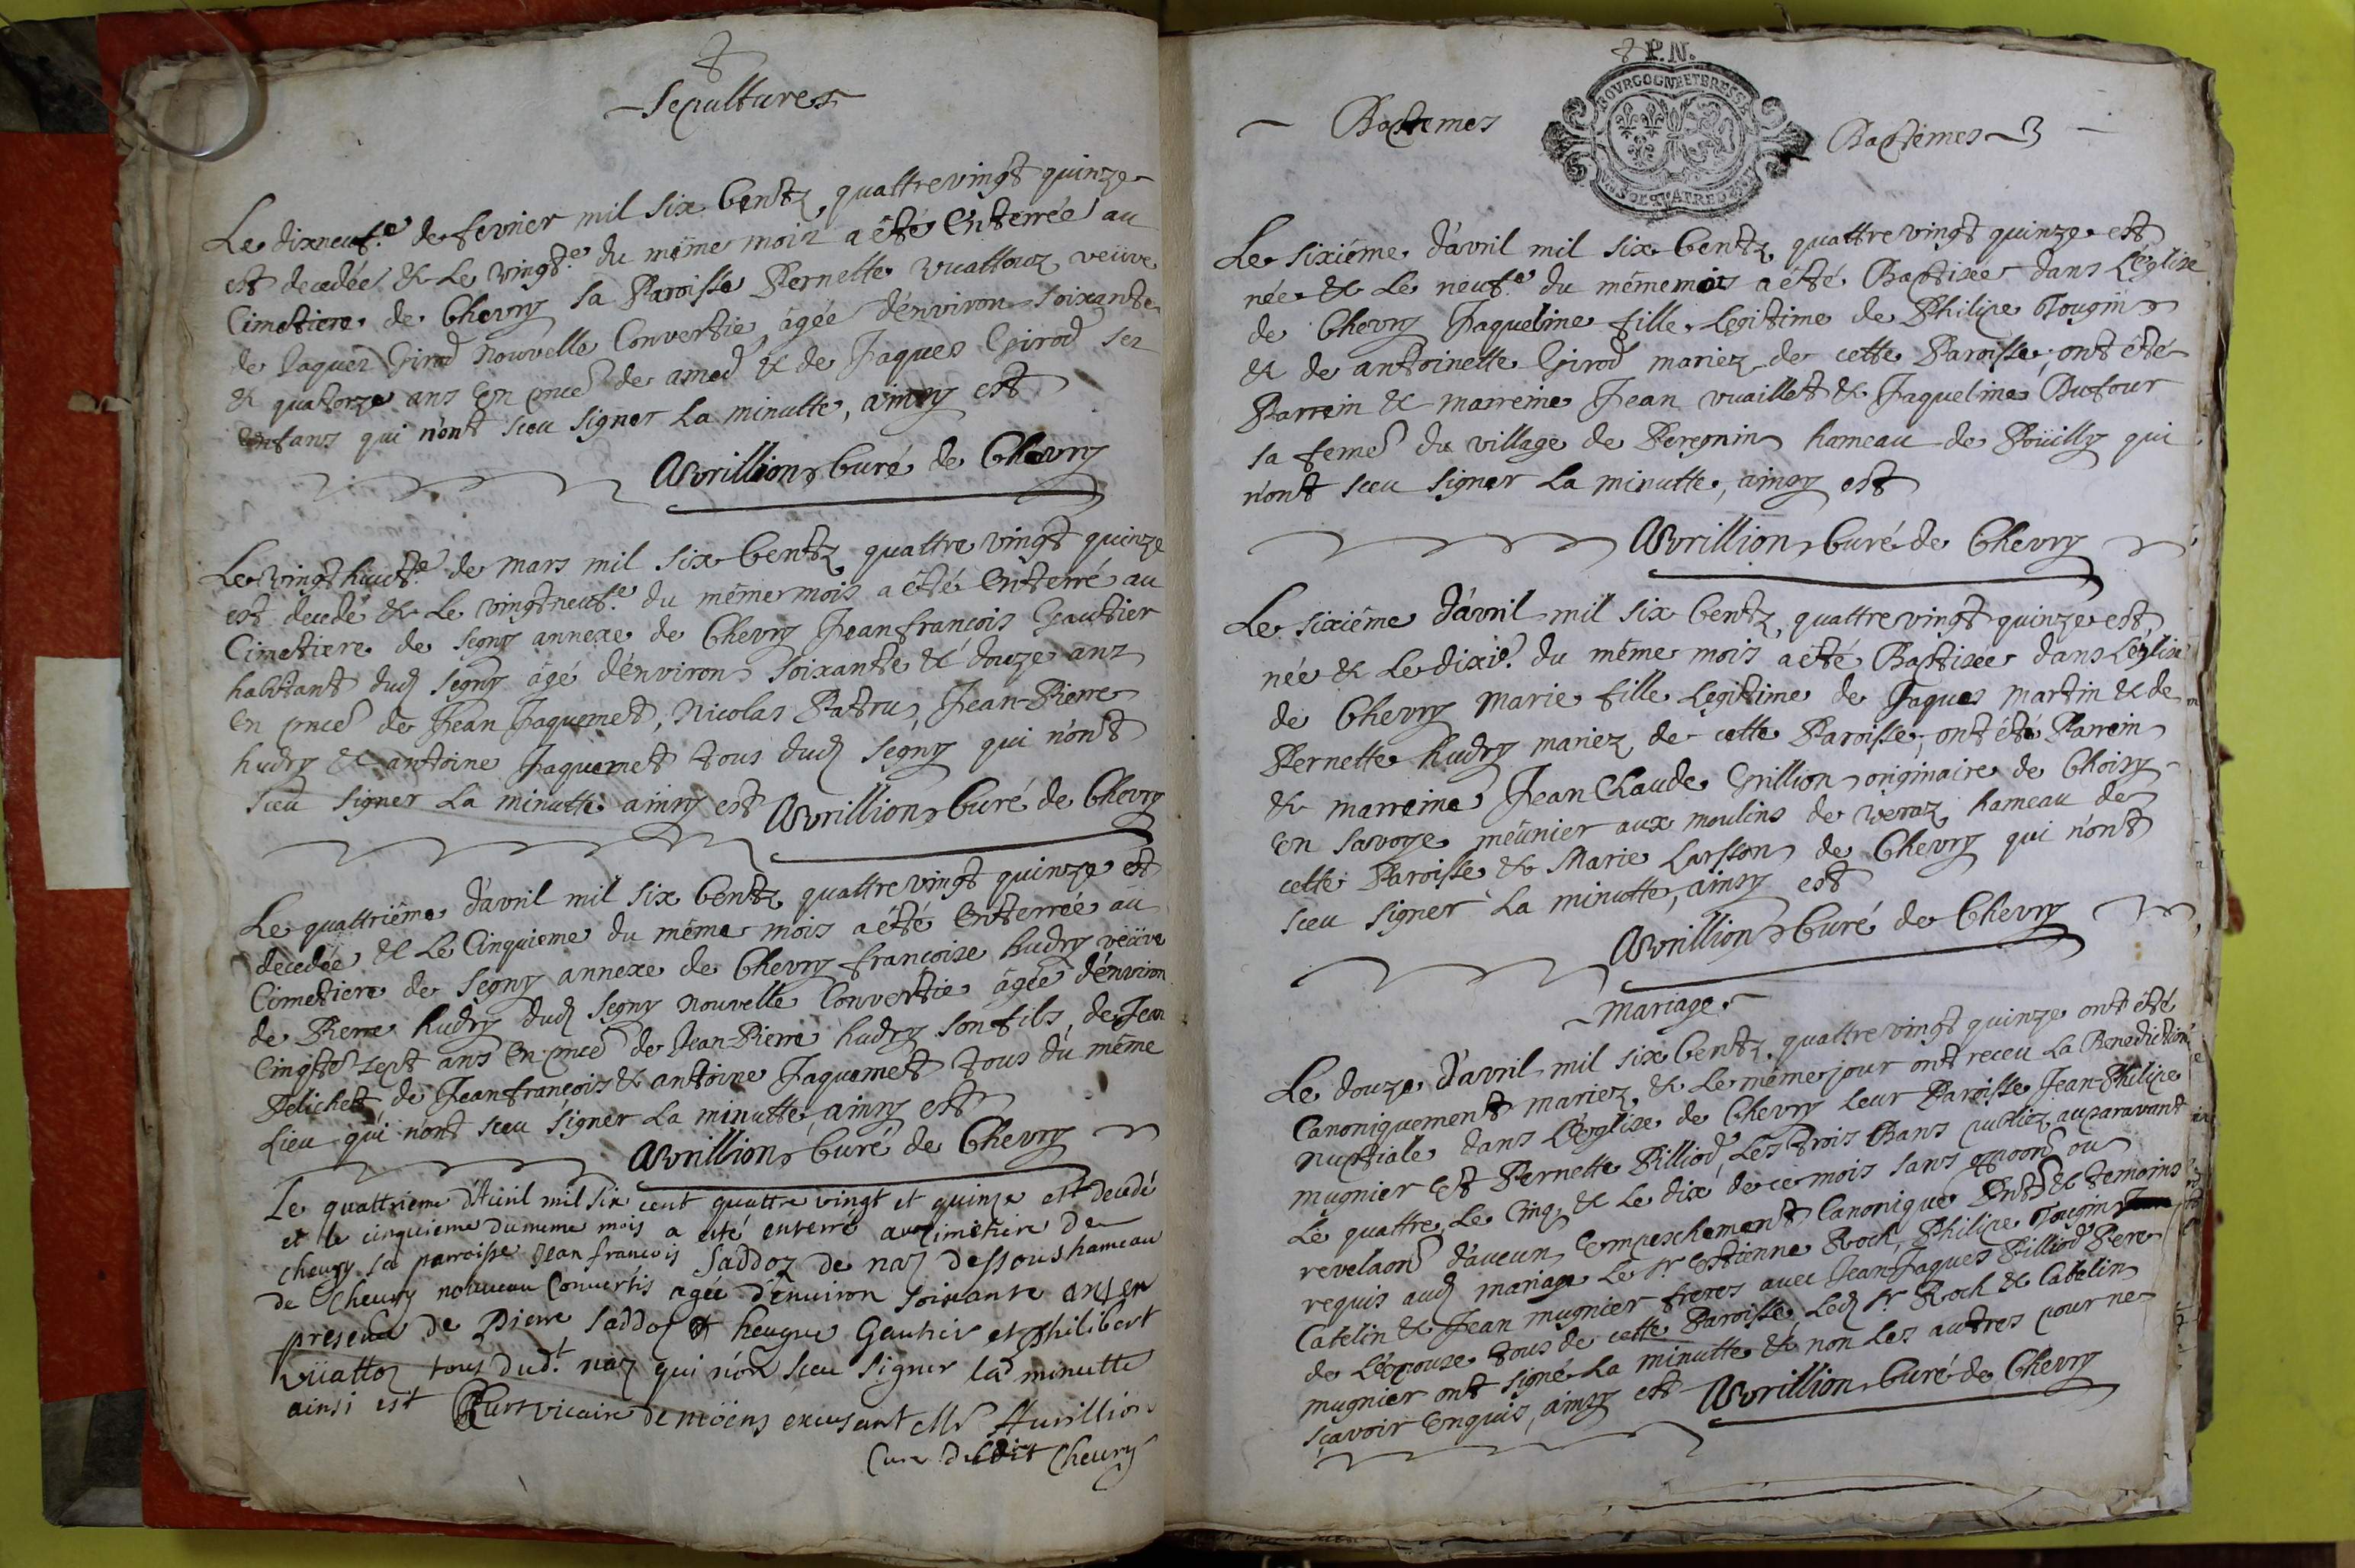 Sepultures
Le dixneuf.e de fevrier mil six Centz quattrevingt quinze
est decedée & Le vingt.e du même mois a été Enterrée au
Cimetiere de Chevry sa Paroisse Pernette vuattouz veüve
de Jaques Girod Nouvelle Convertie âgée d'énviron soixante
& quatorze ans En pnce de amed & de Jaques Girod ses
Enfans qui n'ont sceu signer La minutte, ainsy est
Avrillion Curé de Chevry
Le vingthuict.e de mars mil six Centz quattre vingt quinze
est decedé & Le vingtneuf.e du même mois a été Enterré au
Cimetiere de segny annexe de Chevry Jeanfrançois Gautier
habitant dud segny âgé d'énviron soixante & douze ans
En pnce de Jean Jaquemet, Nicolas Patru, Jean-Pierre
hudry & antoine Jaquemet tous dud segny qui n'ont
sceu signer La minutte ainsy est Avrillion Curé de Chevry
Le quattriême d'avril mil six Centz quattrevingt quinze est
decedée & Le Cinquieme du même mois a été Enterrée au
Cimetiere de segny annexe de Chevry françoise hudry veüve
de Pierre hudry dud segny nouvelle Convertie âgée d'énviron
Cinqte sept ans En pnce de Jean-Pierre hudry son fils, de Jean
Pelichet, de Jeanfrançois & antoine Jaquemet tous du même
Lieu qui n'ont sceu signer La minutte, ainsy est
Avrillion Curé de Chevry
Le quattrieme d'Avril mil six cent quattre vingt et quinze est decedé
et le cinquieme du meme mois a eté enterré au Cimetiere de
Chevry sa parroisse Jean françois Saddoz de naz dessous hameau
de Chevry nouveau Convertis agée d'environ soixante ans en
presence de Pierre Saddoz et heugue Gautier et philibert
vüattoz tous dud.t naz qui n'on sceu signer la minutte
ainsi est vicaire de moëns excusant Mr Avrillion
Cure dudit Chevry
P.N.
BOURGOGNE ET BRESSE
Baptemes Baptêmes 3
Le sixiéme d'avril mil six Centz quattrevingt quinze est
née & Le neuf.e du mêmemois a été Baptisée dans L'église
de Chevry Jaqueline fille Legitime de Philipe Tougin
& de antoinette Girod mariez de cette Paroisse, ont été
Parrein & marreine Jean vuaillet & Jaqueline Dufour
sa feme du village de Peregnin hameau de Poüilly qui
n'ont sceu signer La minutte, ainsy est
Avrillion Curé de Chevry
Le sixiéme d'avril mil six Centz quattrevingt quinze est
née & Le dixie. du même mois a été Baptisée dans L'église
de Chevry Marie fille Legitime de Jaques Martin & de
Pernette hudry mariez de cette Paroisse, ont été Parrein
& marreine JeanClaude Grillion originaire de Choisy
en savoye meünier aux moulins de veraz hameau de
cette Paroisse & Marie Larsson de Chevry qui n'ont
sceu signer La minutte, ainsy est
Avrillion Curé de Chevry
Mariage
Le douze d'avril mil six Centz quattrevingt quinze ont été
Canoniquement mariez & Le même jour ont receu La Benediction
nuptiale dans L'église de Chevry leur Paroisse Jean-Philipe
mugnier Et Pernette Pilliod, Les trois Bans publiez auparavant
Le quattre, Le Cinq, & Le dix de ce mois sans opoon ou
revelaon d'aucun Empeschement Canonique Pnts & temoins
requis aud mariage Le Sr Estienne Roch, Philipe Tougin
Catelin & Jean mugnier freres avec Jean-Jaques Pilliod Pere
de L'épouse tous de cette Paroisse, Led Sr Roch & Catelin
mugnier ont signé La minutte & non Les autres pour ne
sçavoir Enquis, ainsy est Avrillion Curé de Chevry